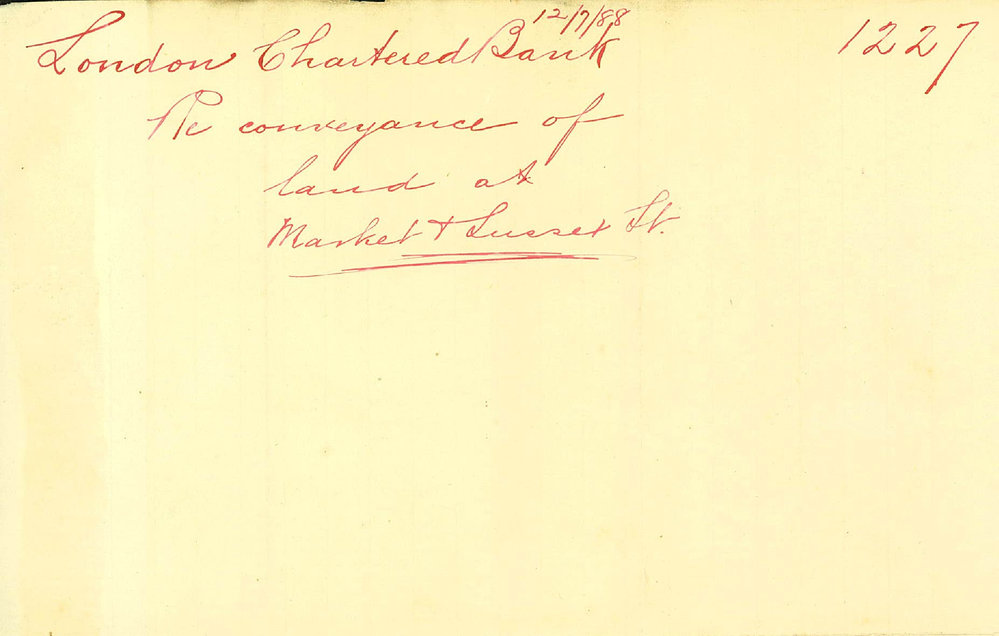 12/7/88
London Chartered Bank 1227
Re conveyance of
land at
Market & Sussex St.